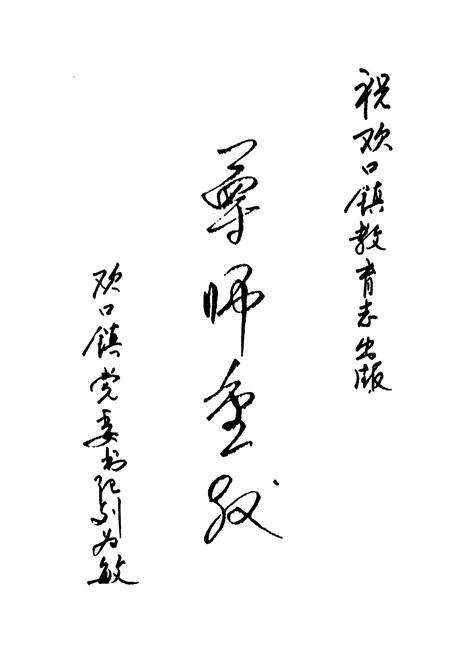 祝欢口镇教育志出版
尊师重教
欢口镇党委书记刘为敏